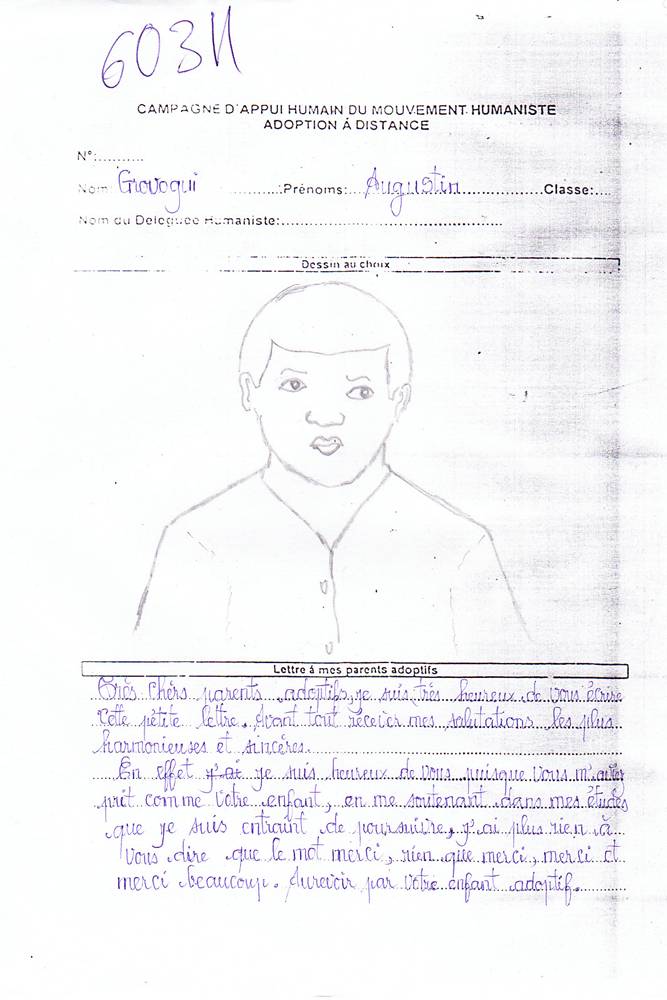 6031
CAMPAGNE D'APPUI HUMAIN DU MOUVEMENT HUMANISTE
ADOPTION À DISTANCE
N°:..........
Nom Grovogui ..........:Prénoms: Augustin ..............Classe:....
Nom du Deleguée Humaniste:.............................................
Dessin au choix
Lettre à mes parents adoptifs
Très Chèrs parents adoptifs, je suis très heureux de vous écrire
Cette pétite lettre. Avant tout récevez mes salutations les plus
harmonieuses et sincères.
En effet j'ai je suis heureux de vous puisque vous m'avez
prit comme votre enfant, en me soutenant dans mes études
que je suis entraint de poursuivre, j'ai plus rien à
vous dire que le mot merci, rien que merci, merci et
merci beaucoup. Aurevoir par votre enfant adoptif.